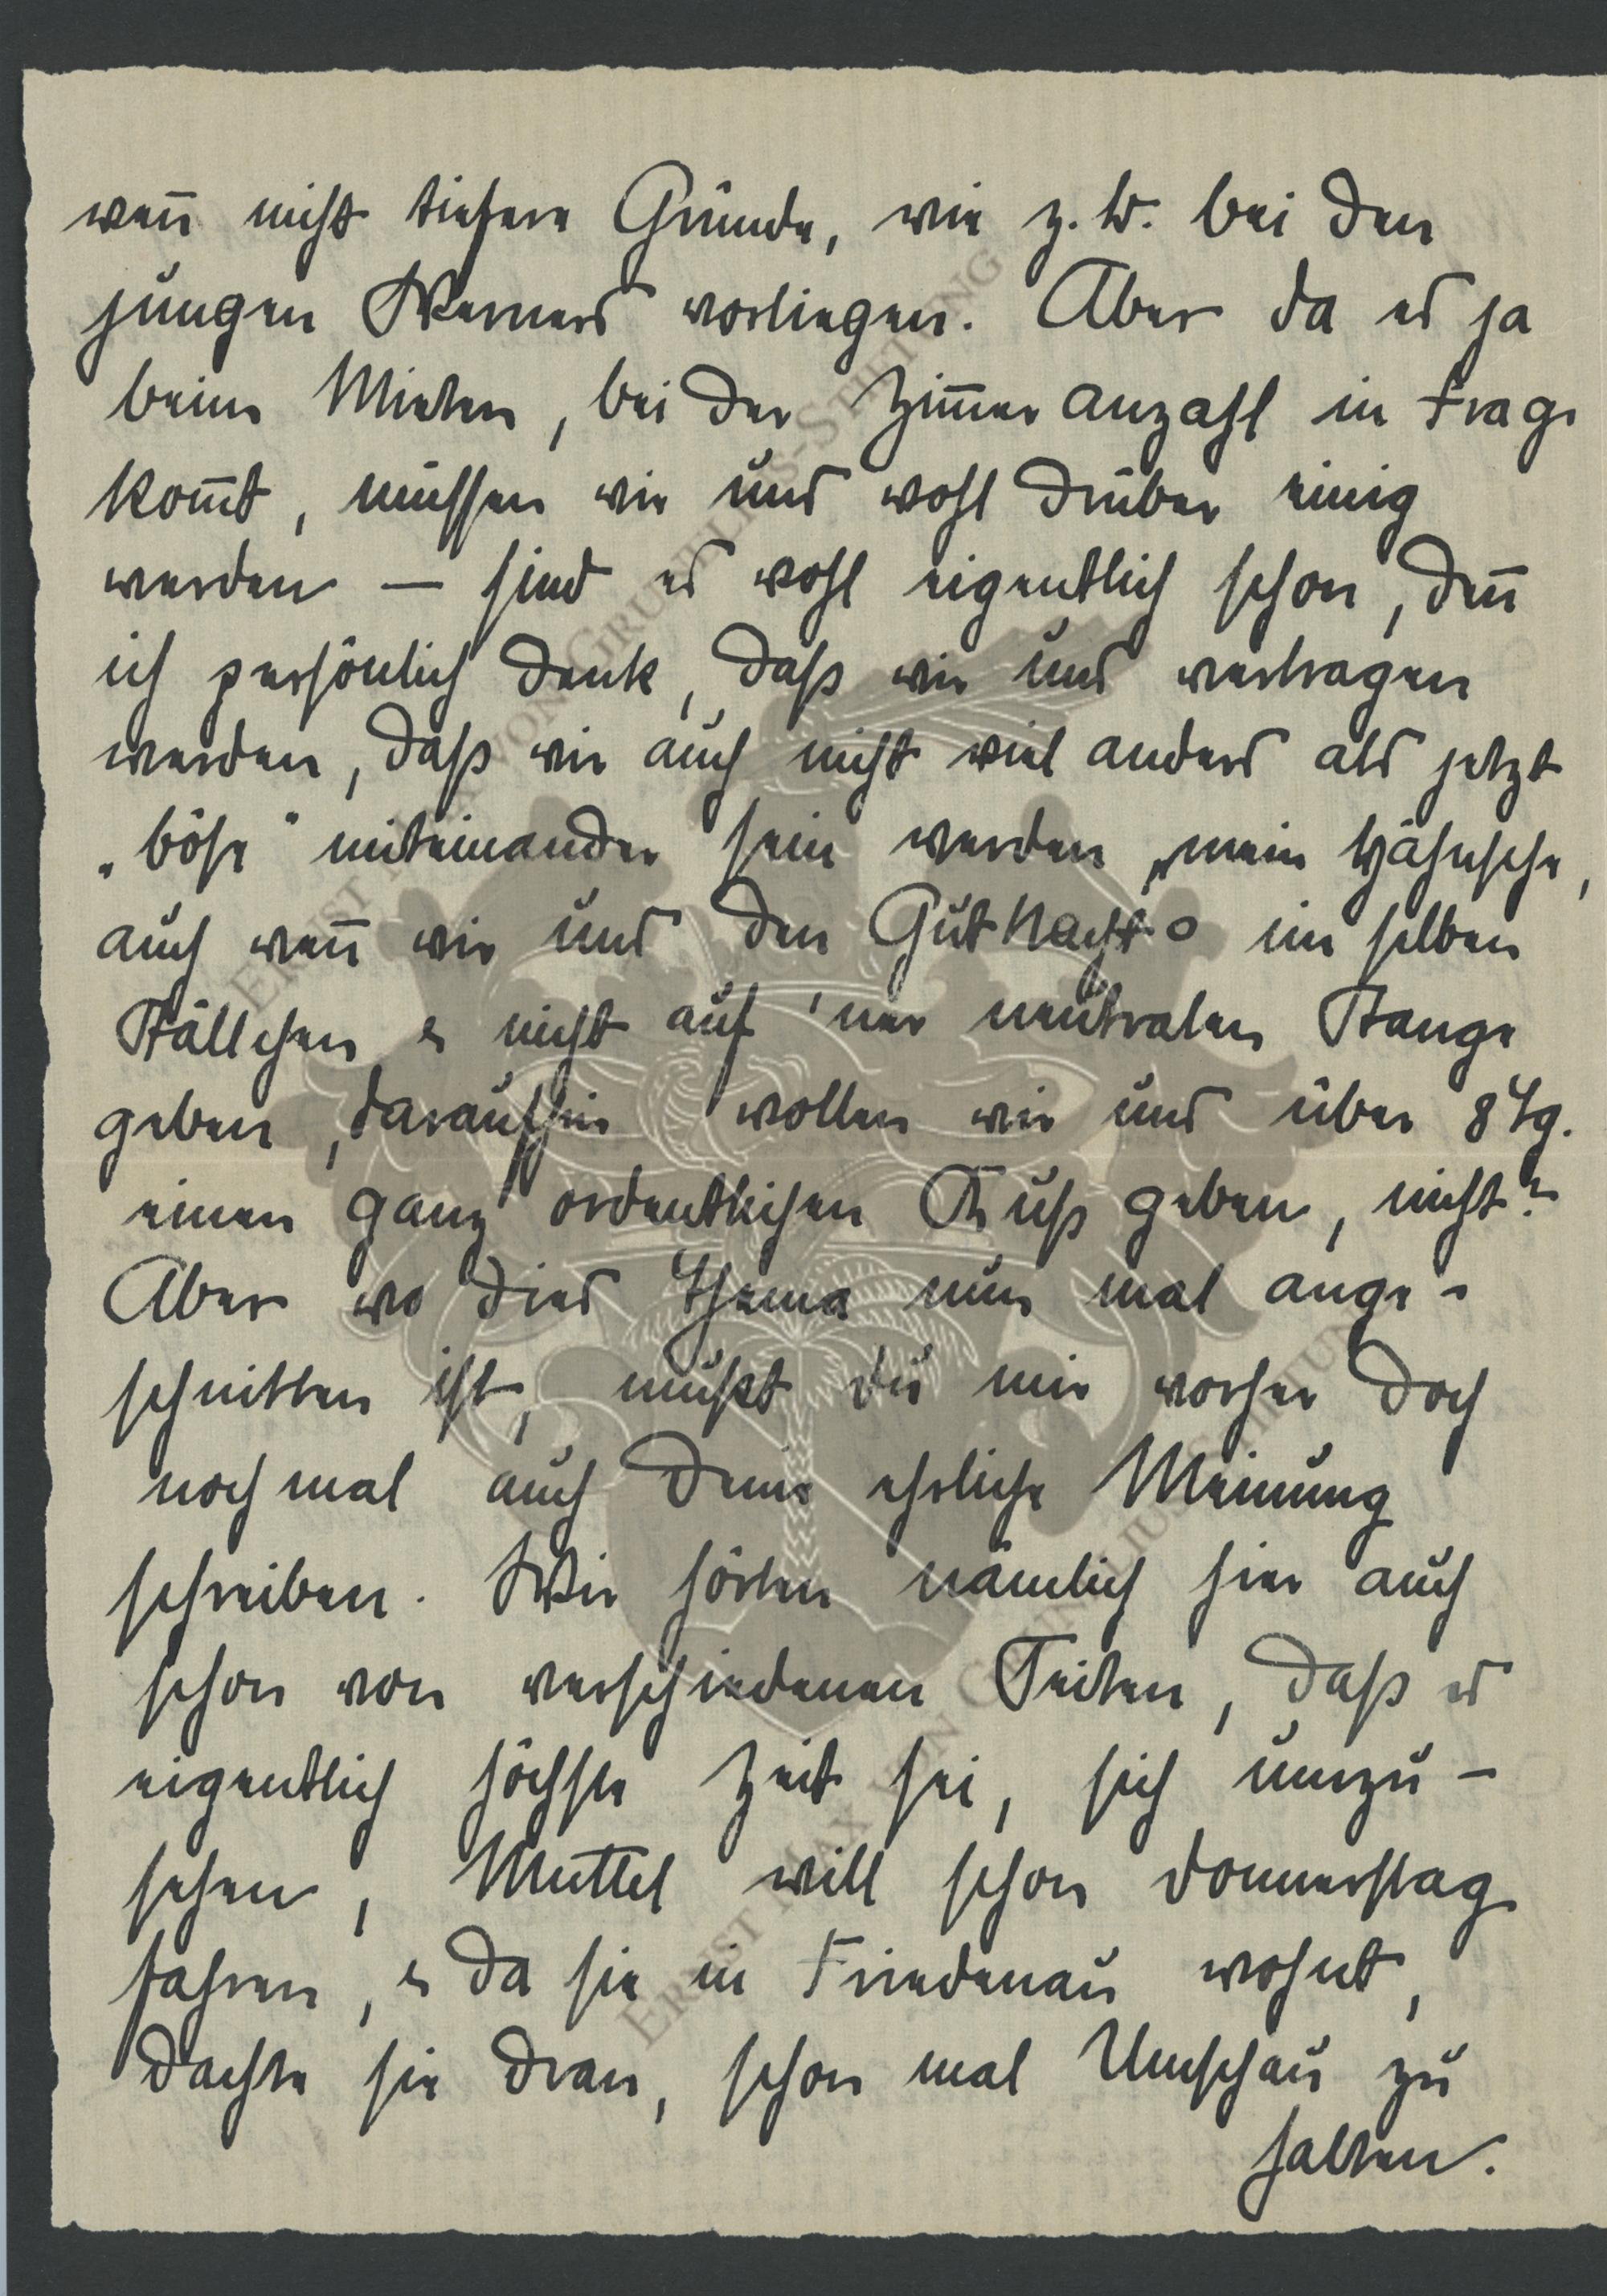 wen̄ nicht tiefere Gründe, wie z. B. bei den
jungen Werners vorliegen. Aber da es ja
beim Mieten, bei der Zim̄eranzahl in Frage
kom̄t, müssen wir uns wohl drüber einig
werden — sind es wohl eigentlich schon, den̄
ich persönlich denk, daß wir uns vertragen
werden, daß wir auch nicht viel anders als jetzt
„böse" miteinander sein werden, mein Hähnsche,
auch wen̄ wir uns den GutNacht o im selben
Ställchen & nicht auf 'ner neutralen Stange
geben, daraufhin wollen wir uns über 8 Tg.
einen ganz ordentlichen Kuß geben, nicht?
Aber wo dies Thema nun mal ange-
schnitten ist, mußt du mir vorher doch
noch mal auch deine ehrliche Meinung
schreiben. Wir hörten nämlich hier auch
schon von verschiedenen Seiten, daß es
eigentlich höchste Zeit sei, sich umzu-
sehen, Muttel will schon Donnerstag
fahren, & da sie in Friedenau wohnt,
dachte sie dran, schon mal Umschau zu
halten.
ERNST MAX VON GRUNELIUS-STIFTUNG
ERNST MAX VON GRUNELIUS-STIFTUNG